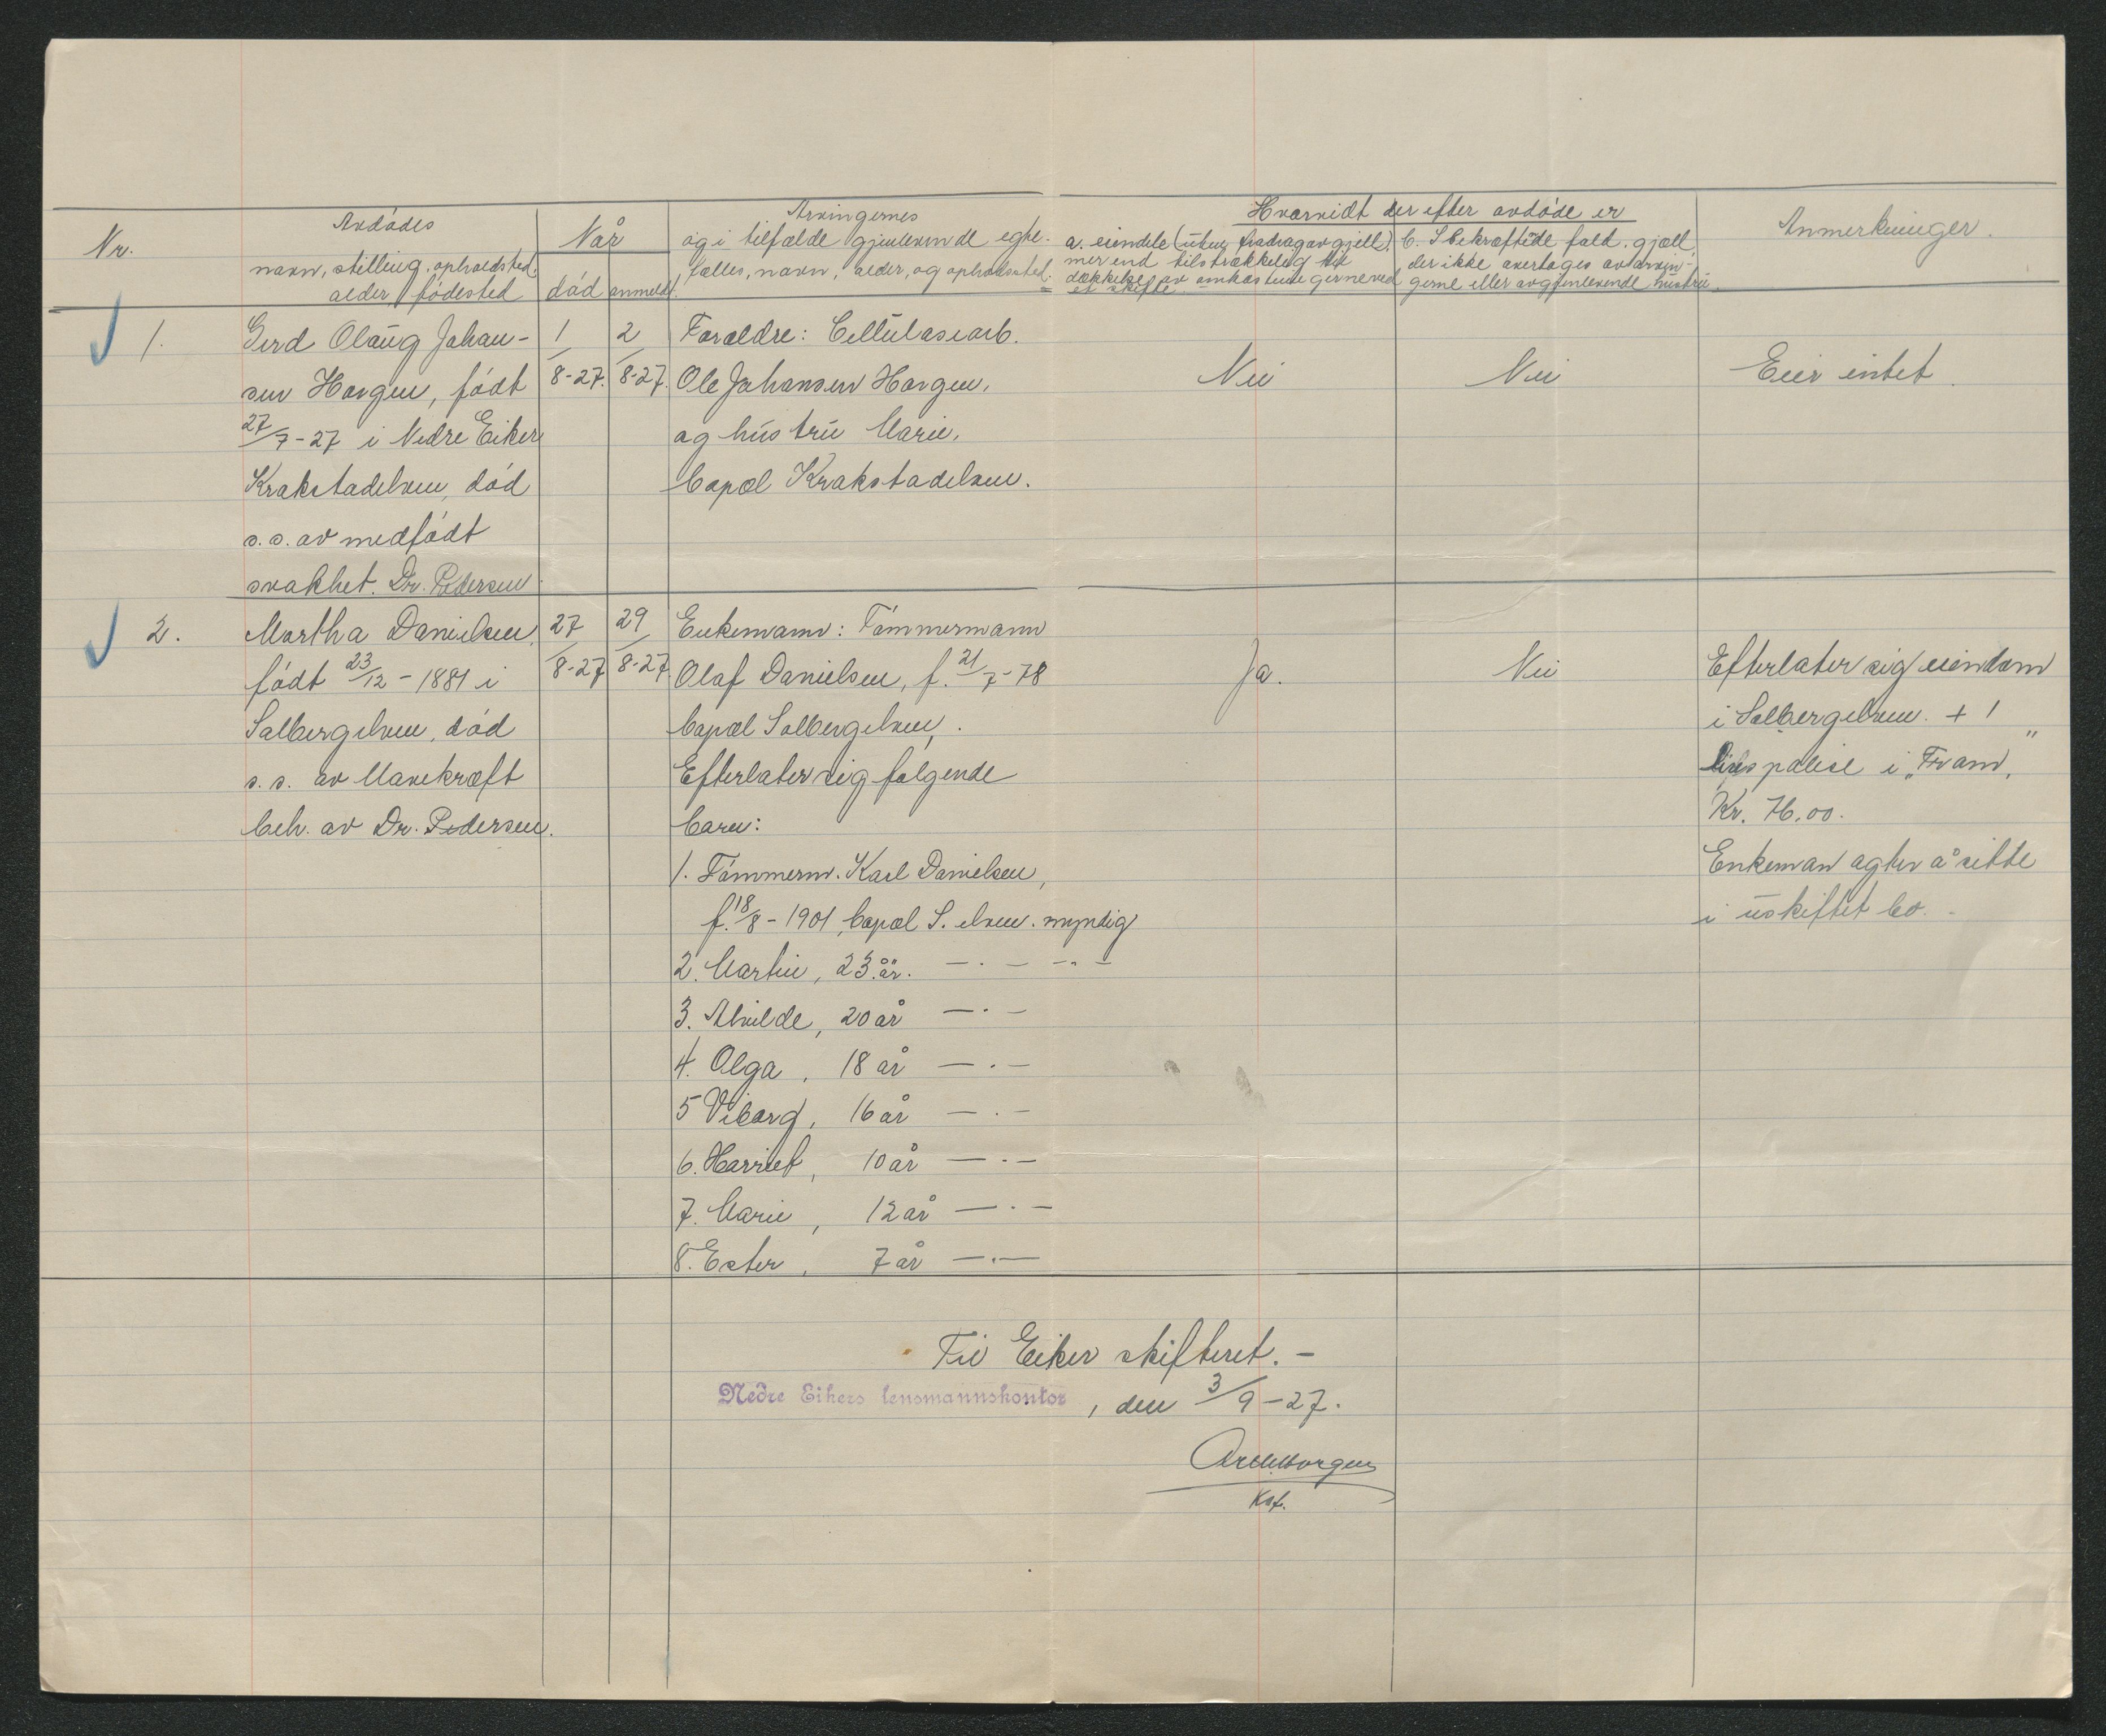 Nr.
Avdødes
navn, stilling, opholdsted,
alder, fødested
Når
død anmeldt.
Arvingernes
og i tilfælde gjenlevende egte-
fælles, navn, alder, og opholdssted.
Hvorvidt der efter avdøde er
a. eiendele (uten fradrag av gjeld)
mer end tilstrækkelig til
dækkelse av omkostningerne ved
et skifte
b. Ubekræftede fald. gjæll
der ikke overtages av arvin-
gerne eller av gjenlevende hustru.
Anmerkninger.
1.
Gerd Olaug Johan-
sen Horgen, født
27/7-27 i Nedre Eiker
Krokstadelven, død
s.s. av medfødt
svakhet. Dr. Pedersen
1/8-27.
2/8-27.
Foreldre: Cellulosearb.
Ole Johansen Horgen,
og hustru Marie,
bopæl Krokstadelven.
Nei
Nei
Eier intet.
2.
Martha Danielsen,
født 23/12-1881 i
Solbergelven, død
s.s. av Mavekræft
beh. av Dr. Pedersen.
27/8-27
29/8-27.
Enkemann: Tømmermann
Olaf Danielsen, f. 21/7-78
bopæl Solbergelven.
Efterlater sig følgende
barn:
1. Tømmerm. Karl Danielsen,
f. 18/8-1901, bopæl S.elven. myndig
2. Martin, 23 år. — . — — " —
3. Alvilde, 20 år — . —
4. Olga, 18 år — . —
5 Viborg, 16 år — . —
6. Harriet, 10 år — . —
7. Marie, 12 år — . —
8. Ester, 7 år — . —
Ja.
Nei
Efterlater sig eiendom
i Solbergelven. + 1
livspolise i „Fram"
Kr. 76.00.
Enkeman agter å sitte
i uskiftet bo.
Til Eiker skifteret. –
Nedre Eikers lensmannskontor, den 3/9-27.
Kst.